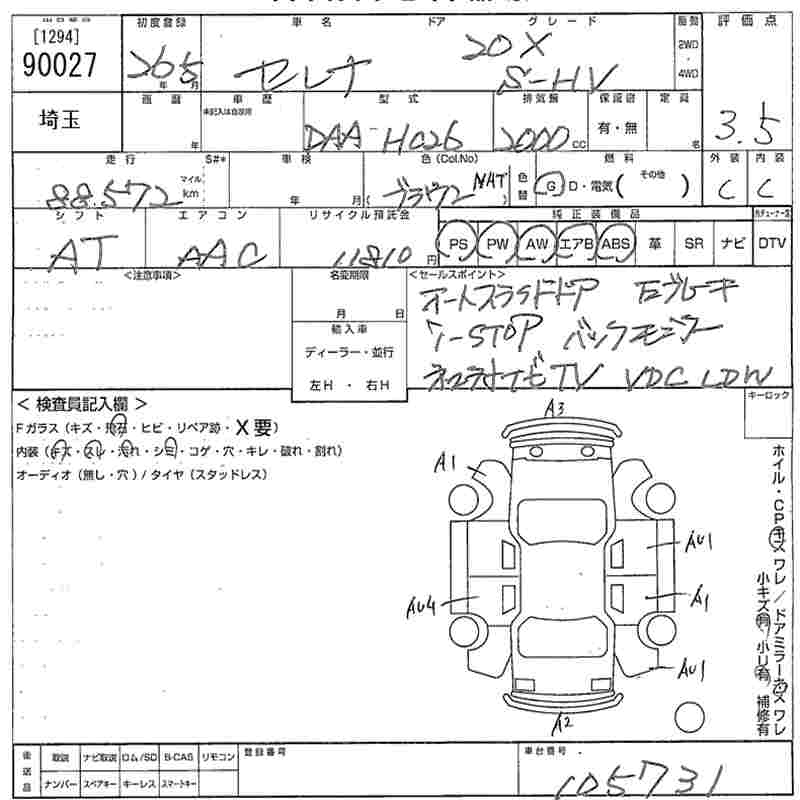 [1294]
90027
埼玉
初度登録
26 5
年 月
車名
ドア
グレード
セレナ
20X
S-HV
駆動
2WD
・
4WD
評価点
3.5
車歴
未記入は自家用
年
型式
DAA-HC26
排気量
2000 CC
保証書
有・無
定員
名
外装
内装
C
C
走行
S#*
88.572
マイル
km
車検
年 月
色(Col.No)
ブラウン
NAT
色替
燃料
G D・電気( その他 )
シフト
AT
エアコン
AAC
リサイクル預託金
11810 円
純正装備品
PS PW AW エアB ABS 革 SR ナビ
DTV
<注意事項>
名変期限
月 日
輸入車
ディーラー・並行
左H ・ 右H
<セールスポイント>
オートスライドドア
ブレーキ
I-STOP バックモニター
TV VDC LDW
キーロック
< 検査員記入欄 >
Fガラス(キズ・飛石・ヒビ・リペア跡・X要)
内装(キズ・スレ・汚れ・シミ・コゲ・穴・キレ・破れ・割れ)
オーディオ(無し・穴)/タイヤ(スタッドレス)
A3
A1
AU1
AU4
A1
AU1
A2
ホイル・CPキズ ワレ/ドアミラーキズ ワレ
小キズ有, 小凹有, 補修有
後送品
取説
ナビ取説
ロム/SD
B-CAS
リモコン
ナンバー
スペアキー
キーレス
スマートキー
登録番号
車台番号
105731